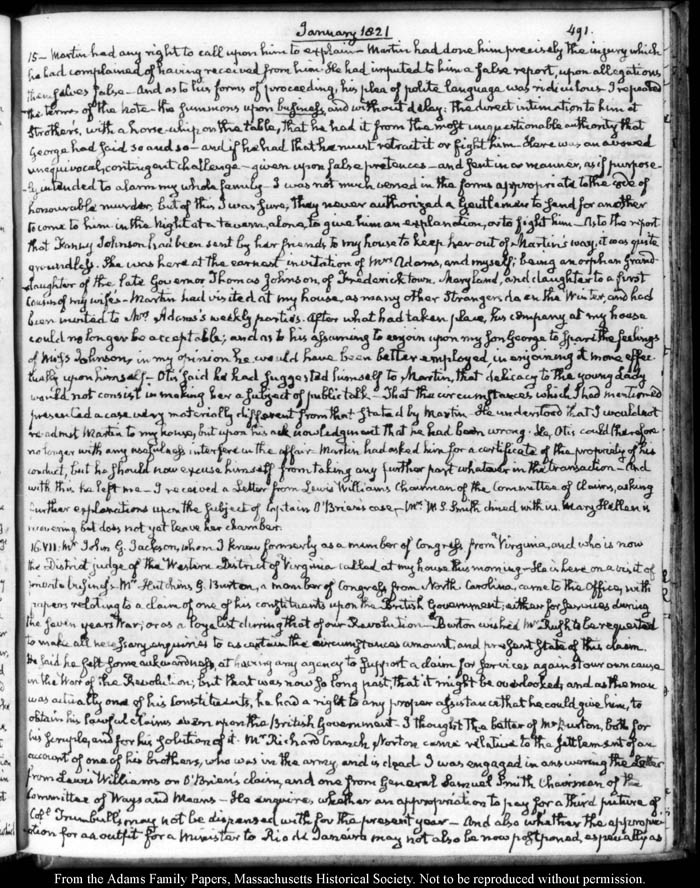 January 1821
491.
15– Martin had any right to call upon him to explain– Martin had done him precisely the injury which
he had complained of having received from him. He had imputed to him a false report, upon allegations
themselves false– And as to his forms of proceeding, his plea of polite language was ridiculous I repeated
the terms of the note the summons upon business, and without delay; The direct intimation to him at
Strothers, with a horse-whip on the table, that he had it from the most unquestionable authority that
George had said so and so– and if he had that he must retract it or fight him– Here was an avowed
unequivocal, contingent challenge– given upon false pretences– and sent in a manner, as if purpose-
-ly intended to alarm my whole family– I was not much versed in the forms appropriate to the code of
honourable murder, but of this I was sure, they never authorized a Gentleman to send for another
to come to him in the Night at a tavern, alone, to give him an explanation, or to fight him– As to the report
that Fanny Johnson had been sent by her friends to my house to keep her out of Martin's way, it was quite
groundless. She was here at the earnest invitation of Mrs Adams, and myself; being an orphan Grand-
daughter of the late Governor Thomas Johnson, of Frederick town, Maryland, and daughter to a first
Cousin of my wife– Martin had visited at my house, as many other Strangers do in the Winter, and had
been invited to Mrs Adams's weekly parties. After what had taken place, his company at my house
could no longer be acceptable; and as to his assuming to enjoin upon my Son George to spare the feelings
of Miss Johnson, in my opinion he would have been better employed, in enjoining it more effec-
tually upon himself– Otis said he had suggested himself to Martin, that delicacy to the young Lady
would not consist in making her a subject of public talk– That the circumstances which I had mentioned
presented a case very materially different from that stated by Martin– He understood that I would not
readmit Martin to my house, but upon his acknowledgment that he had been wrong. He, Otis, could therefore
no longer with any usefulness interfere in the affair. Martin had asked him for a certificate of the propriety of his
conduct, but he should now excuse himself from taking any further part whatever in the transaction– And
with this he left me– I received a Letter from Lewis Williams Chairman of the Committee of Claims, asking
further explanations upon the subject of Captain O'Brien's case– Mr M. S. Smith dined with us. Mary Hellen is
recovering but does not yet leave her chamber.
16. VII. Mr John G. Jackson, whom I knew formerly as a member of Congress from Virginia, and who is now
the District judge of the Western District of Virginia called at my house this morning– He is here on a visit of
private business– Mr Hutchins G. Burton, a member of Congress from North Carolina, came to the Office, with
papers relating to a claim of one of his constituents upon the British Government, either for services during
the seven years War, or as a loyalist during that of our Revolution– Burton wished Mr Rush to be requested
to make all necessary enquiries to ascertain the circumstances amount, and present state of this claim.
He said he felt some awkwardness, at having any agency to support a claim for services against our own cause
in the War of the Revolution; but that was now so long past, that it might be overlooked, and as the man
was actually one of his Constituents, he had a right to any proper assistance that he could give him, to
obtain his lawful claims even upon the British Government. I thought the better of Mr Burton, both for
his scruple, and for his solution of it. Mr Richard Cranch Norton came relative to the settlement of an
account of one of his brothers, who was in the army, and is dead. I was engaged in answering the Letter
from Lewis Williams on O'Brien's claim, and one from General Samuel Smith Chairman of the
Committee of Ways and Means– He enquires whether an appropriation to pay for a third picture of
Coll Trumbull's may not be dispensed with for the present year– And also whether the appropri-
-ation for an outfit for a Minister to Rio de Janeiro may not also be now postponed, especially as
From the Adams Family Papers, Massachusetts Historical Society. Not to be reproduced without permission.